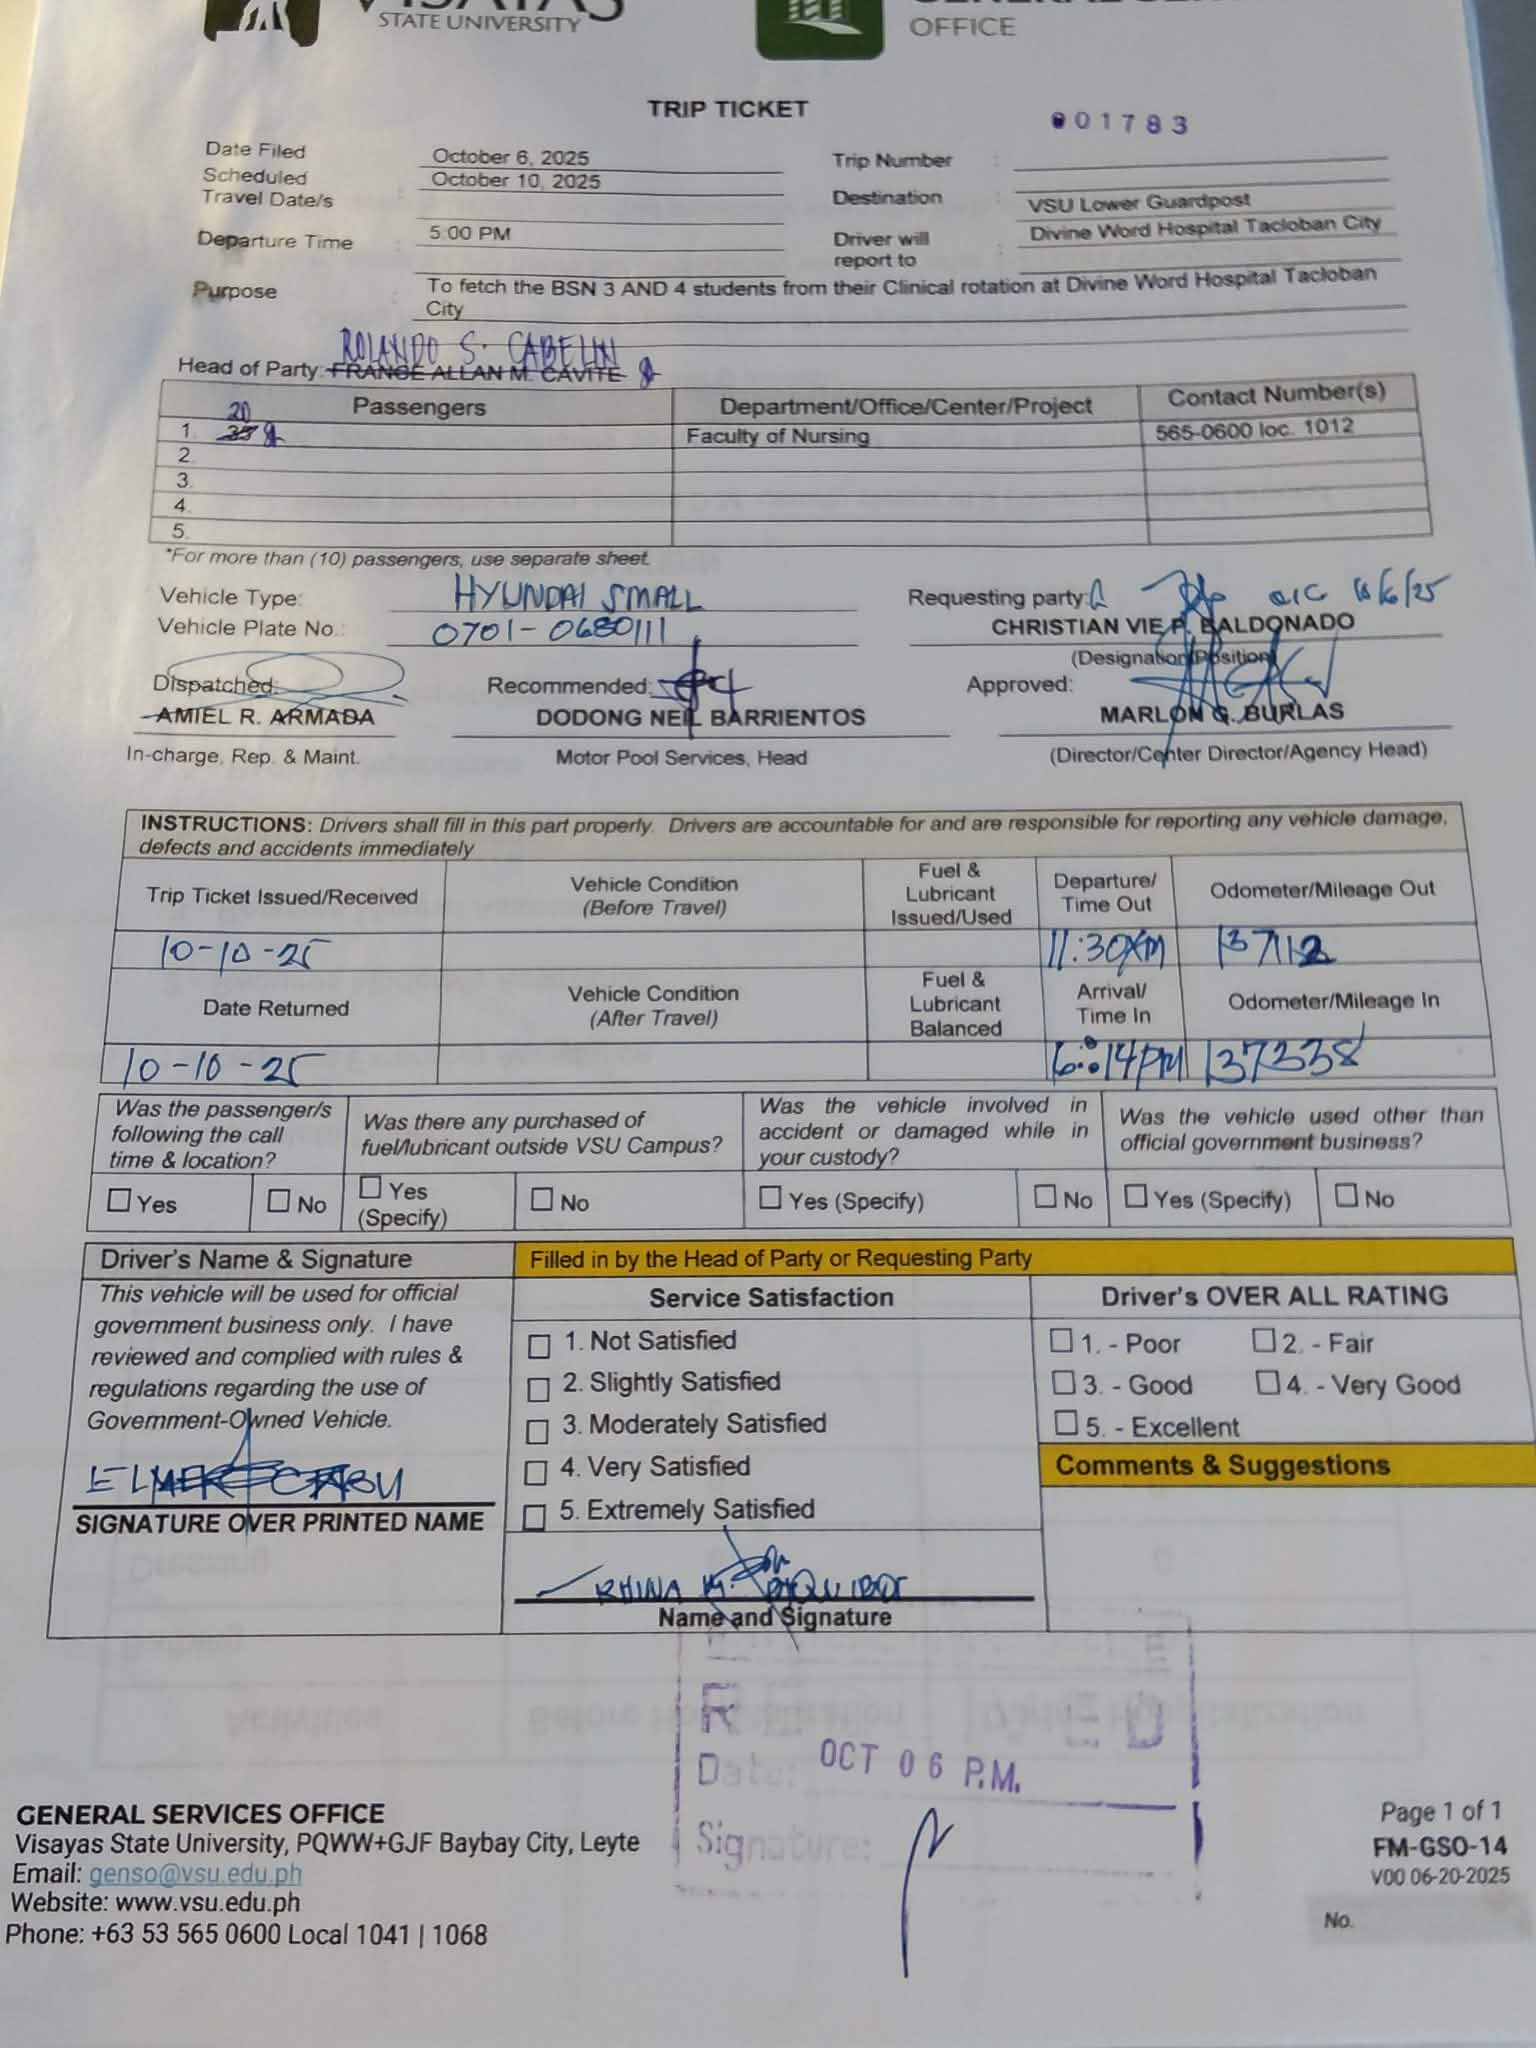 STATE UNIVERSITY
OFFICE
TRIP TICKET
001783
Date Filed October 6, 2025
Scheduled Travel Date/s : October 10, 2025
Departure Time : 5:00 PM
Trip Number :
Destination : VSU Lower Guardpost
Driver will report to : Divine Word Hospital Tacloban City
Purpose : To fetch the BSN 3 AND 4 students from their Clinical rotation at Divine Word Hospital Tacloban
City
ROLANDO S. CABELIN
Head of Party: FRANCE ALLAN M. CAVITE
Passengers Department/Office/Center/Project Contact Number(s)
20
1. 35 Faculty of Nursing 565-0600 loc. 1012
2.
3.
4.
5.
*For more than (10) passengers, use separate sheet.
Vehicle Type: HYUNDAI SMALL
Vehicle Plate No.: 0701-0680111
Requesting party: OIC 10/6/25
CHRISTIAN VIE P. BALDONADO
(Designation/Position)
Dispatched: Recommended: Approved:
AMIEL R. ARMADA DODONG NEIL BARRIENTOS MARLON G. BURLAS
In-charge, Rep. & Maint. Motor Pool Services, Head (Director/Center Director/Agency Head)
INSTRUCTIONS: Drivers shall fill in this part properly. Drivers are accountable for and are responsible for reporting any vehicle damage,
defects and accidents immediately
Trip Ticket Issued/Received Vehicle Condition (Before Travel) Fuel & Lubricant Issued/Used Departure/ Time Out Odometer/Mileage Out
10-10-25 11:30AM 137112
Date Returned Vehicle Condition (After Travel) Fuel & Lubricant Balanced Arrival/ Time In Odometer/Mileage In
10-10-25 6:14PM 137338
Was the passenger/s following the call time & location?
Was there any purchased of fuel/lubricant outside VSU Campus?
Was the vehicle involved in accident or damaged while in your custody?
Was the vehicle used other than official government business?
Yes No Yes (Specify) No Yes (Specify) No Yes (Specify) No
Driver's Name & Signature
This vehicle will be used for official
government business only. I have
reviewed and complied with rules &
regulations regarding the use of
Government-Owned Vehicle.
SIGNATURE OVER PRINTED NAME
Filled in by the Head of Party or Requesting Party
Service Satisfaction
1. Not Satisfied
2. Slightly Satisfied
3. Moderately Satisfied
4. Very Satisfied
5. Extremely Satisfied
RHINA M.
Name and Signature
Driver's OVER ALL RATING
1. - Poor 2. - Fair
3. - Good 4. - Very Good
5. - Excellent
Comments & Suggestions
Date: OCT 06 P.M.
Signature:
GENERAL SERVICES OFFICE
Visayas State University, PQWW+GJF Baybay City, Leyte
Email: genso@vsu.edu.ph
Website: www.vsu.edu.ph
Phone: +63 53 565 0600 Local 1041 | 1068
Page 1 of 1
FM-GSO-14
V00 06-20-2025
No.